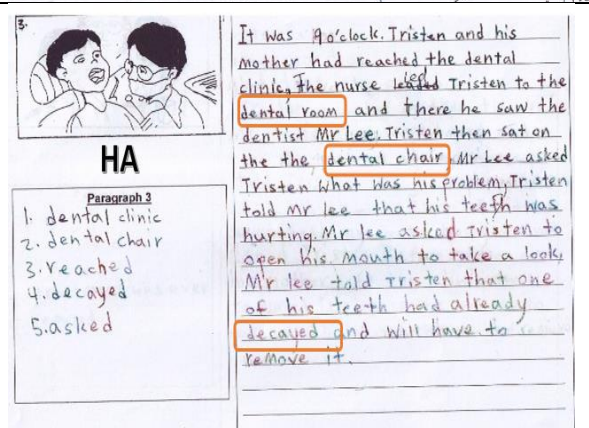 3.
HA
Paragraph 3
1. dental clinic
2. dental chair
3. reached
4. decayed
5. asked
It was 9 o'clock. Tristen and his
mother had reached the dental
clinic. The nurse led Tristen to the
dental room and there he saw the
dentist Mr Lee. Tristen then sat on
the the dental chair. Mr Lee asked
Tristen what was his problem, Tristen
told Mr lee that his teeth was
hurting. Mr lee asked Tristen to
open his mouth to take a look.
Mr lee told Tristen that one
of his teeth had already
decayed and will have to
remove it.